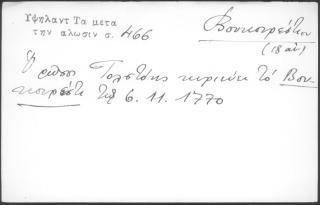 Υψηλαντ Τα μετα
την αλωσιν σ. 466
Βουκουρέστιον
(18 αἰ)
Ὁ ρῶσος Τολστόης κυριεύει τό Βου-
κουρέστι τῇ 6. 11. 1770